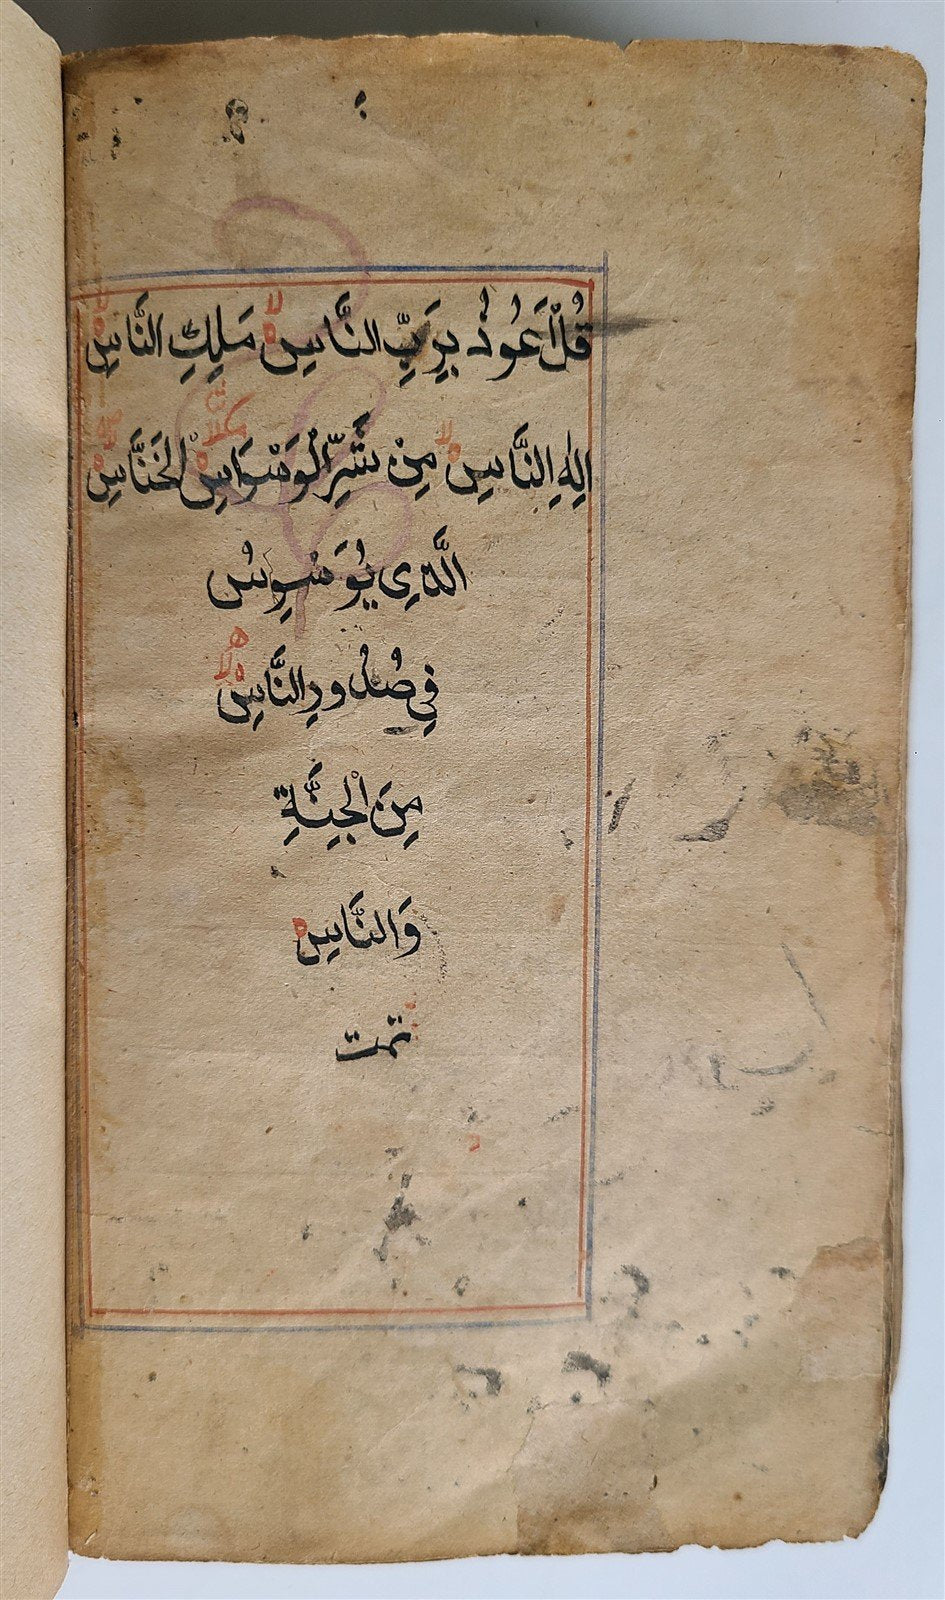 قُلْ اَعُوْذُ بِرَبِّ النَّاسِ ۙ مَلِكِ النَّاسِ ۙ
اِلٰهِ النَّاسِ ۙ مِنْ شَرِّ الْوَسْوَاسِ الْخَنَّاسِ
الَّذِى يُوَسْوِسُ
فِى صُدُورِ النَّاسِ ۙ
مِنَ الْجِنَّةِ
وَالنَّاسِ
تمت